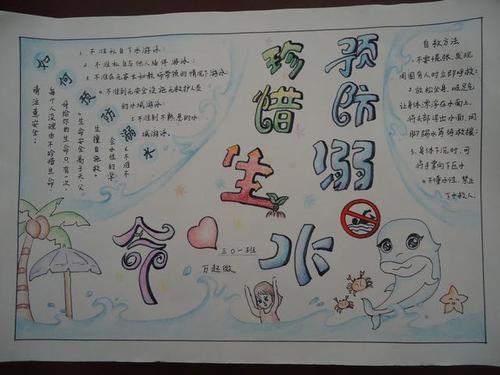 珍惜生命
预防溺水
如何预防溺水
1.不准私自下水游泳;
2.不准私自与他人结伴游泳;
3.不准在无家长和教师带领的情况下游泳;
4.不准到无安全设施无救护人员
的水域游泳;
5.不准到不熟悉的水
域游泳;
6.不准不
会水性的学
生擅自施救。
生命安全高于天,
母给你的生命只有一次,
每个人没理由不珍惜生命,
请注意安全!
自救方法
1.不要慌张,发现
周围有人时立即呼救;
2.放松全身,
让身体漂浮在水面上,
将头部浮出水面,用
脚踢水等待救援;
3.身体下沉时,可
将手掌向下压水
4.不懂水性,禁止
下水救人;
三〇一班
万起微